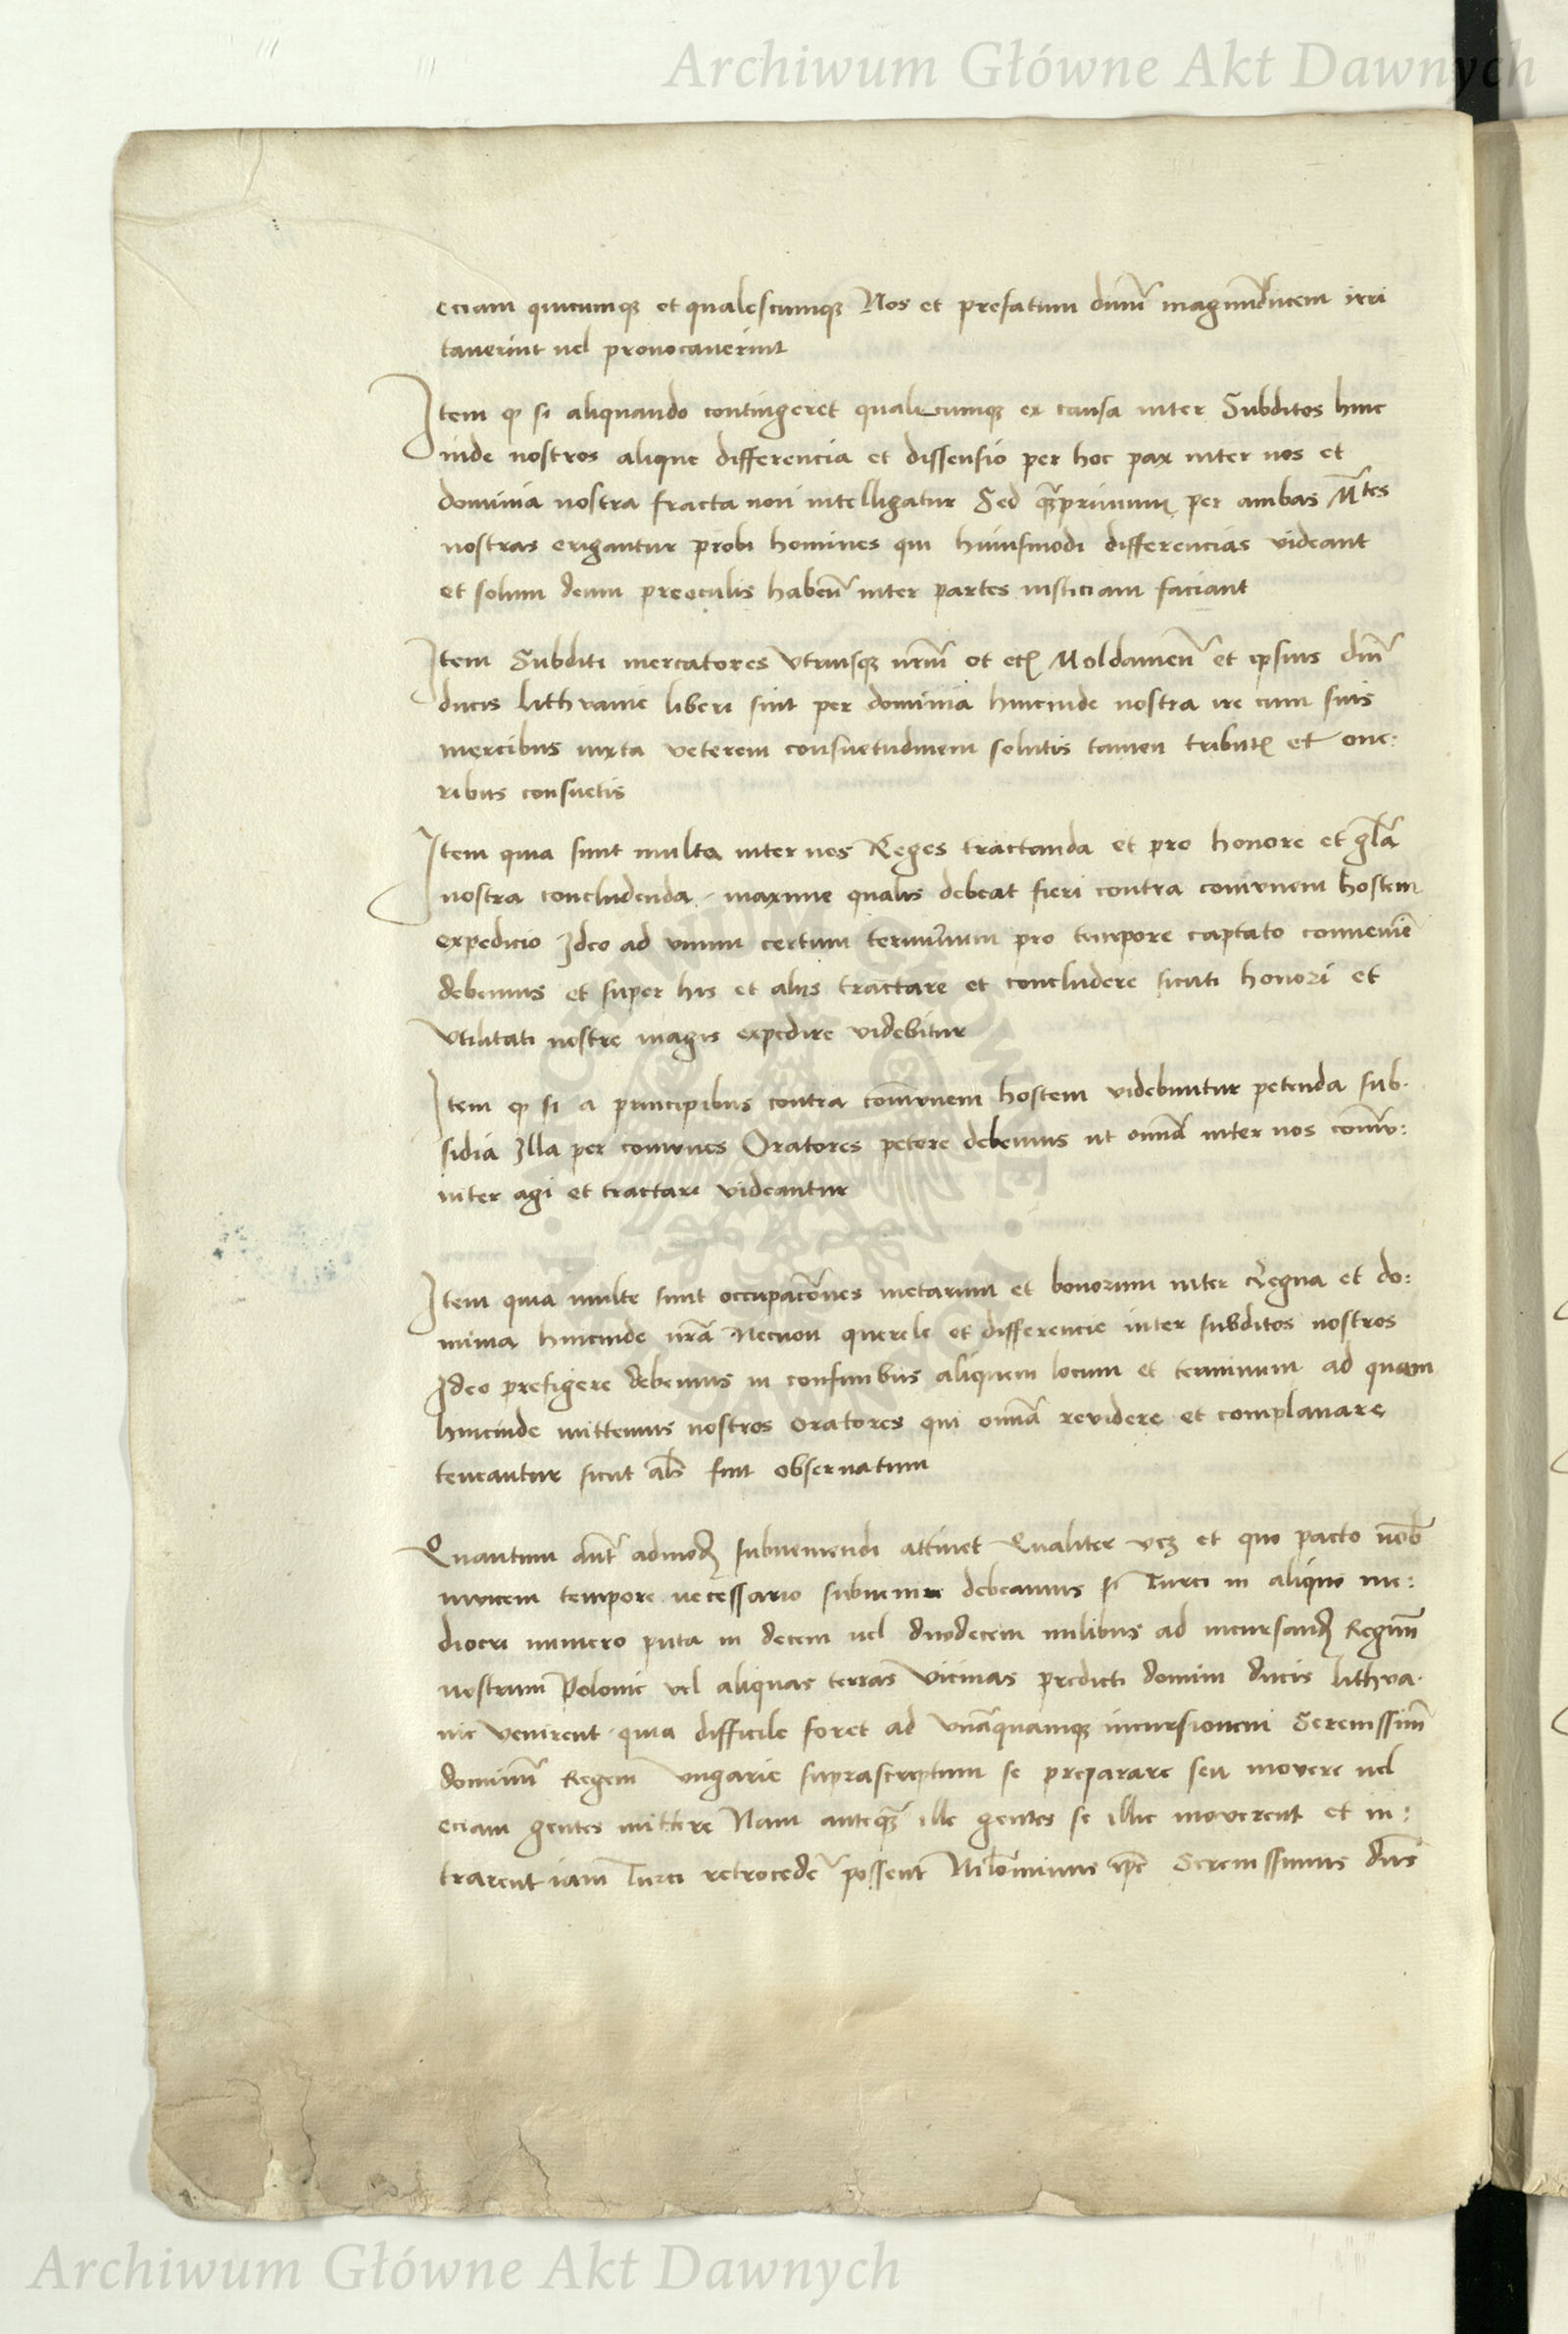 Archiwum Główne Akt Dawnych
eciam quicumqꝫ et qualescumqꝫ Nos et prefatum dnm̄ magnūducem irri
tauerint uel prouocauerint
Item ꝙ si aliquando contingeret qualicumqꝫ ex causa inter Subditos hinc
inde nostros alique differencia et dissensio per hoc pax inter nos et
dominia nostra fracta non intelligatur Sed qꝫ̄primum per ambas Mtes
nostras erigantur probi homines qui huiusmodi differencias videant
et solum deum preoculis habeñ inter partes iusticiam faciant
Item Subditi mercatores vtriusqꝫ nrm̄ et etꝫ Moldauieñ et ipsius dm̄
ducis lithvanie liberi sint per dominia hincinde nostra ire cum suis
mercibus iuxta veterem consuetudinem solutis tamen tributꝫ et one:
ribus consuetis
Item quia sunt multa inter nos Reges tractanda et pro honore et glā
nostra concludenda, maxime qualis debeat fieri contra comvnem hostem
expedicio Ideo ad vnum certum terminum pro tempore captato conuenir̄
debemus et super his et alijs tractare et concludere sicuti honori et
vtilitati nostre magis expedire videbitur
Item ꝙ si a principibus contra com̄vnem hostem videbuntur petenda sub-
sidia Illa per comvnes Oratores petere debemus ut omīa inter nos com̄v:
niter agi et tractari videantur
Item quia multe sunt occupacōnes metarum et bonorum inter Regna et do:
minia hincinde nrā Necnon querele et differencie inter subditos nostros
Ideo prefigere debemus in confinibus aliquem locum et terminum ad quam
hincinde mittemus nostros oratores qui omīa revidere et complanare
teneantur sicut als̄ fuit obseruatum
Quantum aut̄ admodꝫ subueniendi attinet Qualiter vcꝫ et quo pacto nob̄
inuicem tempore necessario subuenire debeamus si Turci in aliquo me:
diocri numero puta in decem uel duodecem milibus ad incursandꝫ Regnum̄
nostrum Polonie vel aliquas terras vicinas predicti domini ducis lithva-
nie venirent quia difficile foret ad vnāquamqꝫ incursionem Serenissim̄
dominū Regem vngarie suprascriptum se preparare seu mouere uel
eciam gentes mittere Nam anteqꝫ̄ ille gentes se illic mouerent et in:
trarent iam Turci retrocede᷑ possent Nihilominus ip̄e Serenissimus dn̄s
Archiwum Główne Akt Dawnych